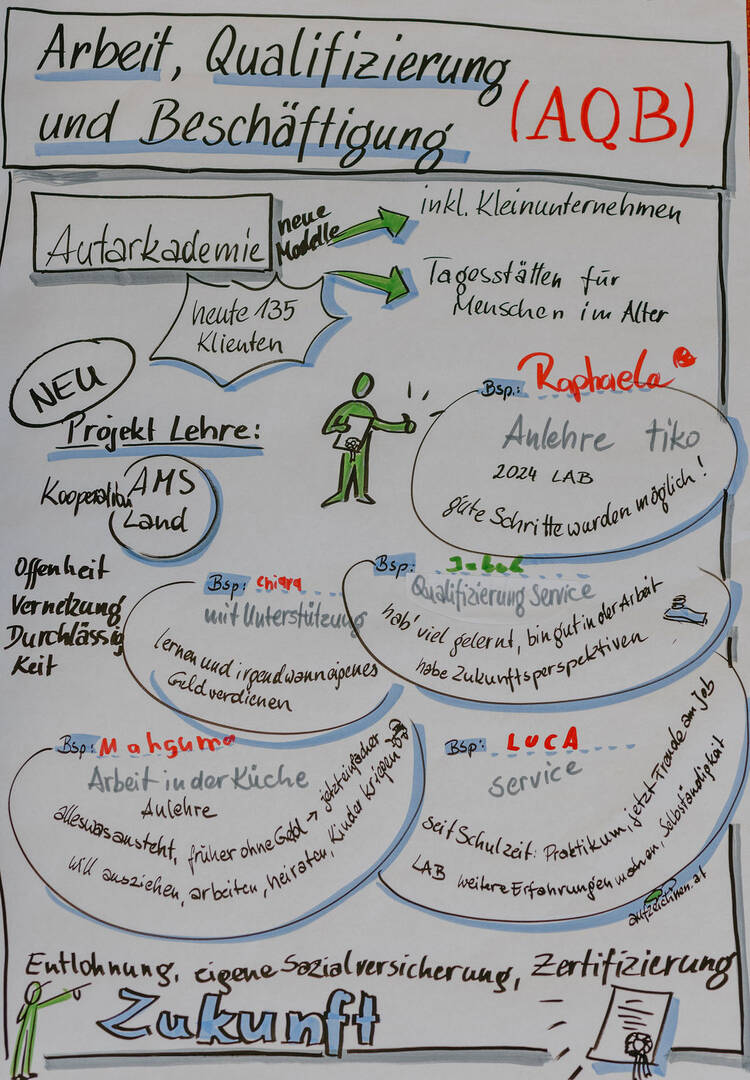 Arbeit, Qualifizierung
und Beschäftigung
(AQB)
Autarkademie
neue
Modelle
inkl. Kleinunternehmen
Tagesstätten für
Menschen im Alter
heute 135
Klienten
NEU
Projekt Lehre:
Kooperation
AMS
Land
Offenheit
Vernetzung
Durchlässig
Keit
Bsp.: Raphaela
Anlehre tiko
2024 LAB
gute Schritte wurden möglich!
Bsp: Chiara
mit Unterstützung
lernen und irgendwann eigenes
Geld verdienen
Bsp: Jakob
Qualifizierung Service
hab' viel gelernt, bin gut in der Arbeit
habe Zukunftsperspektiven
Bsp: Mahguma
Arbeit in der Küche
Anlehre
alles was ansteht, früher ohne Geld → jetzt einfacher
will ausziehen, arbeiten, heiraten, Kinder kriegen
Bsp: LUCA
Service
seit Schulzeit: Praktikum, jetzt Freude am Job
LAB weitere Erfahrungen machen, Selbständigkeit
aufzeichnen.at
Entlohnung, eigene Sozialversicherung, Zertifizierung
Zukunft